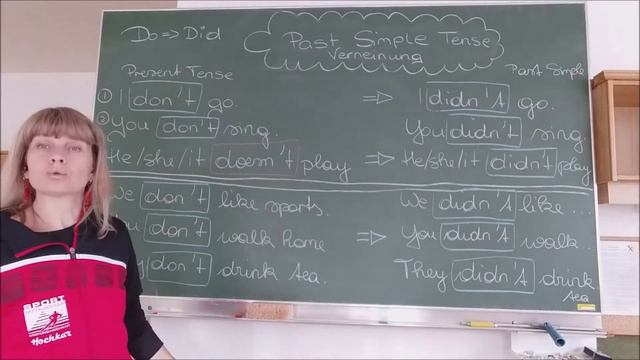 Do => Did
Past Simple Tense
Verneinung
Present Tense
Past Simple
① I don't go. => I didn't go.
② You don't sing. You didn't sing.
He/she/it doesn't play => He/she/it didn't play
We don't like sports. We didn't like ...
don't walk home => You didn't walk...
don't drink tea. They didn't drink
tea
SPORT
Hochkar